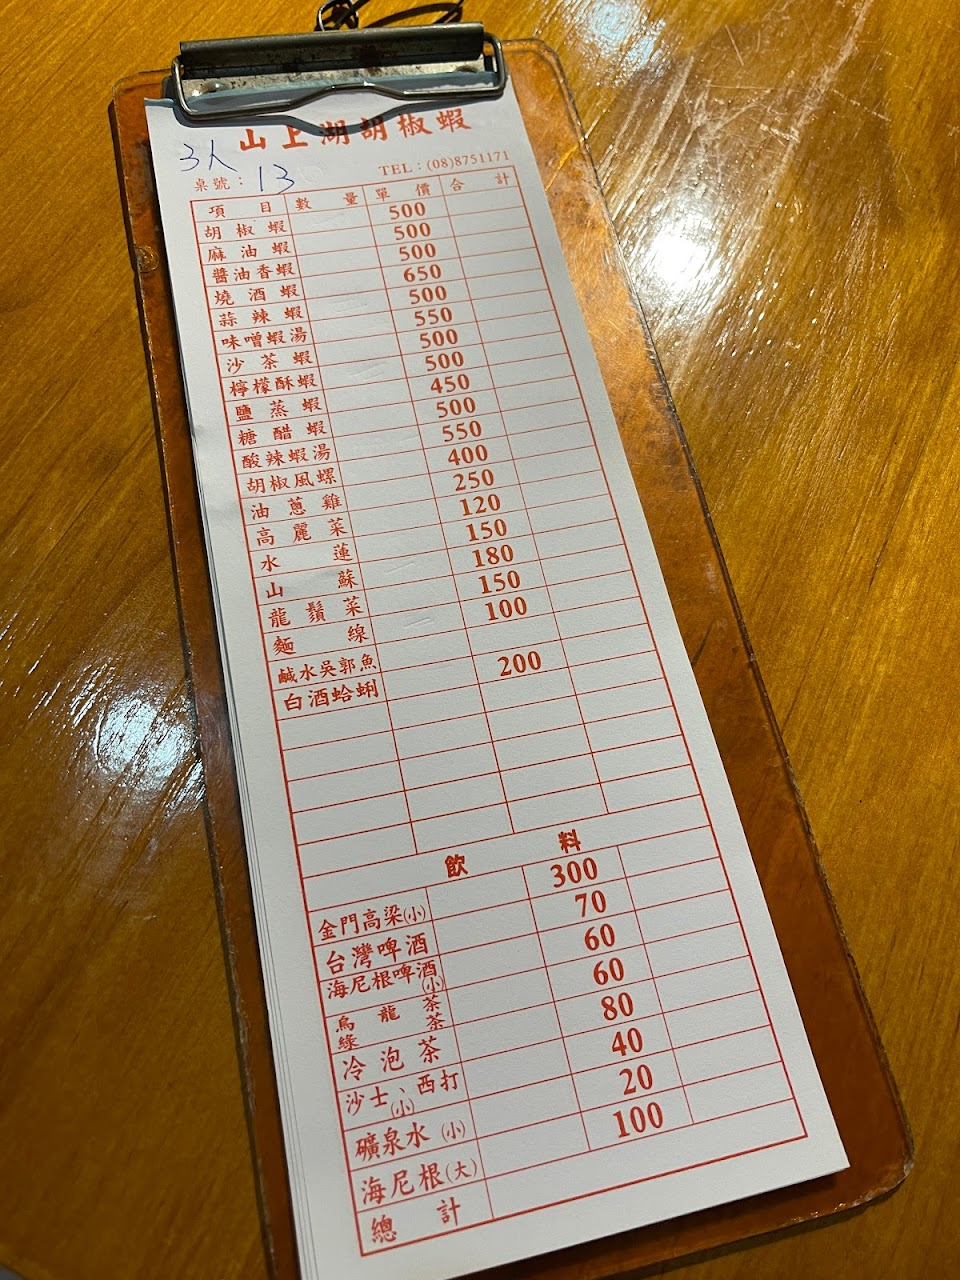 山上湖胡椒蝦
3人
TEL：(08)8751171
桌號：13
項目 數量 單價 合計
胡椒蝦 500
麻油蝦 500
醬油香蝦 500
燒酒蝦 650
蒜辣蝦 500
味噌蝦湯 550
沙茶蝦 500
檸檬酥蝦 500
鹽蒸蝦 450
糖醋蝦 500
酸辣蝦湯 550
胡椒風螺 400
油蔥雞 250
高麗菜 120
水蓮 150
山蘇 180
龍鬚菜 150
麵線 100
鹹水吳郭魚
白酒蛤蜊 200
飲料
金門高梁(小) 300
台灣啤酒 70
海尼根啤酒(小) 60
烏龍茶
綠茶 60
冷泡茶 80
沙士、西打(小) 40
礦泉水(小) 20
海尼根(大) 100
總計